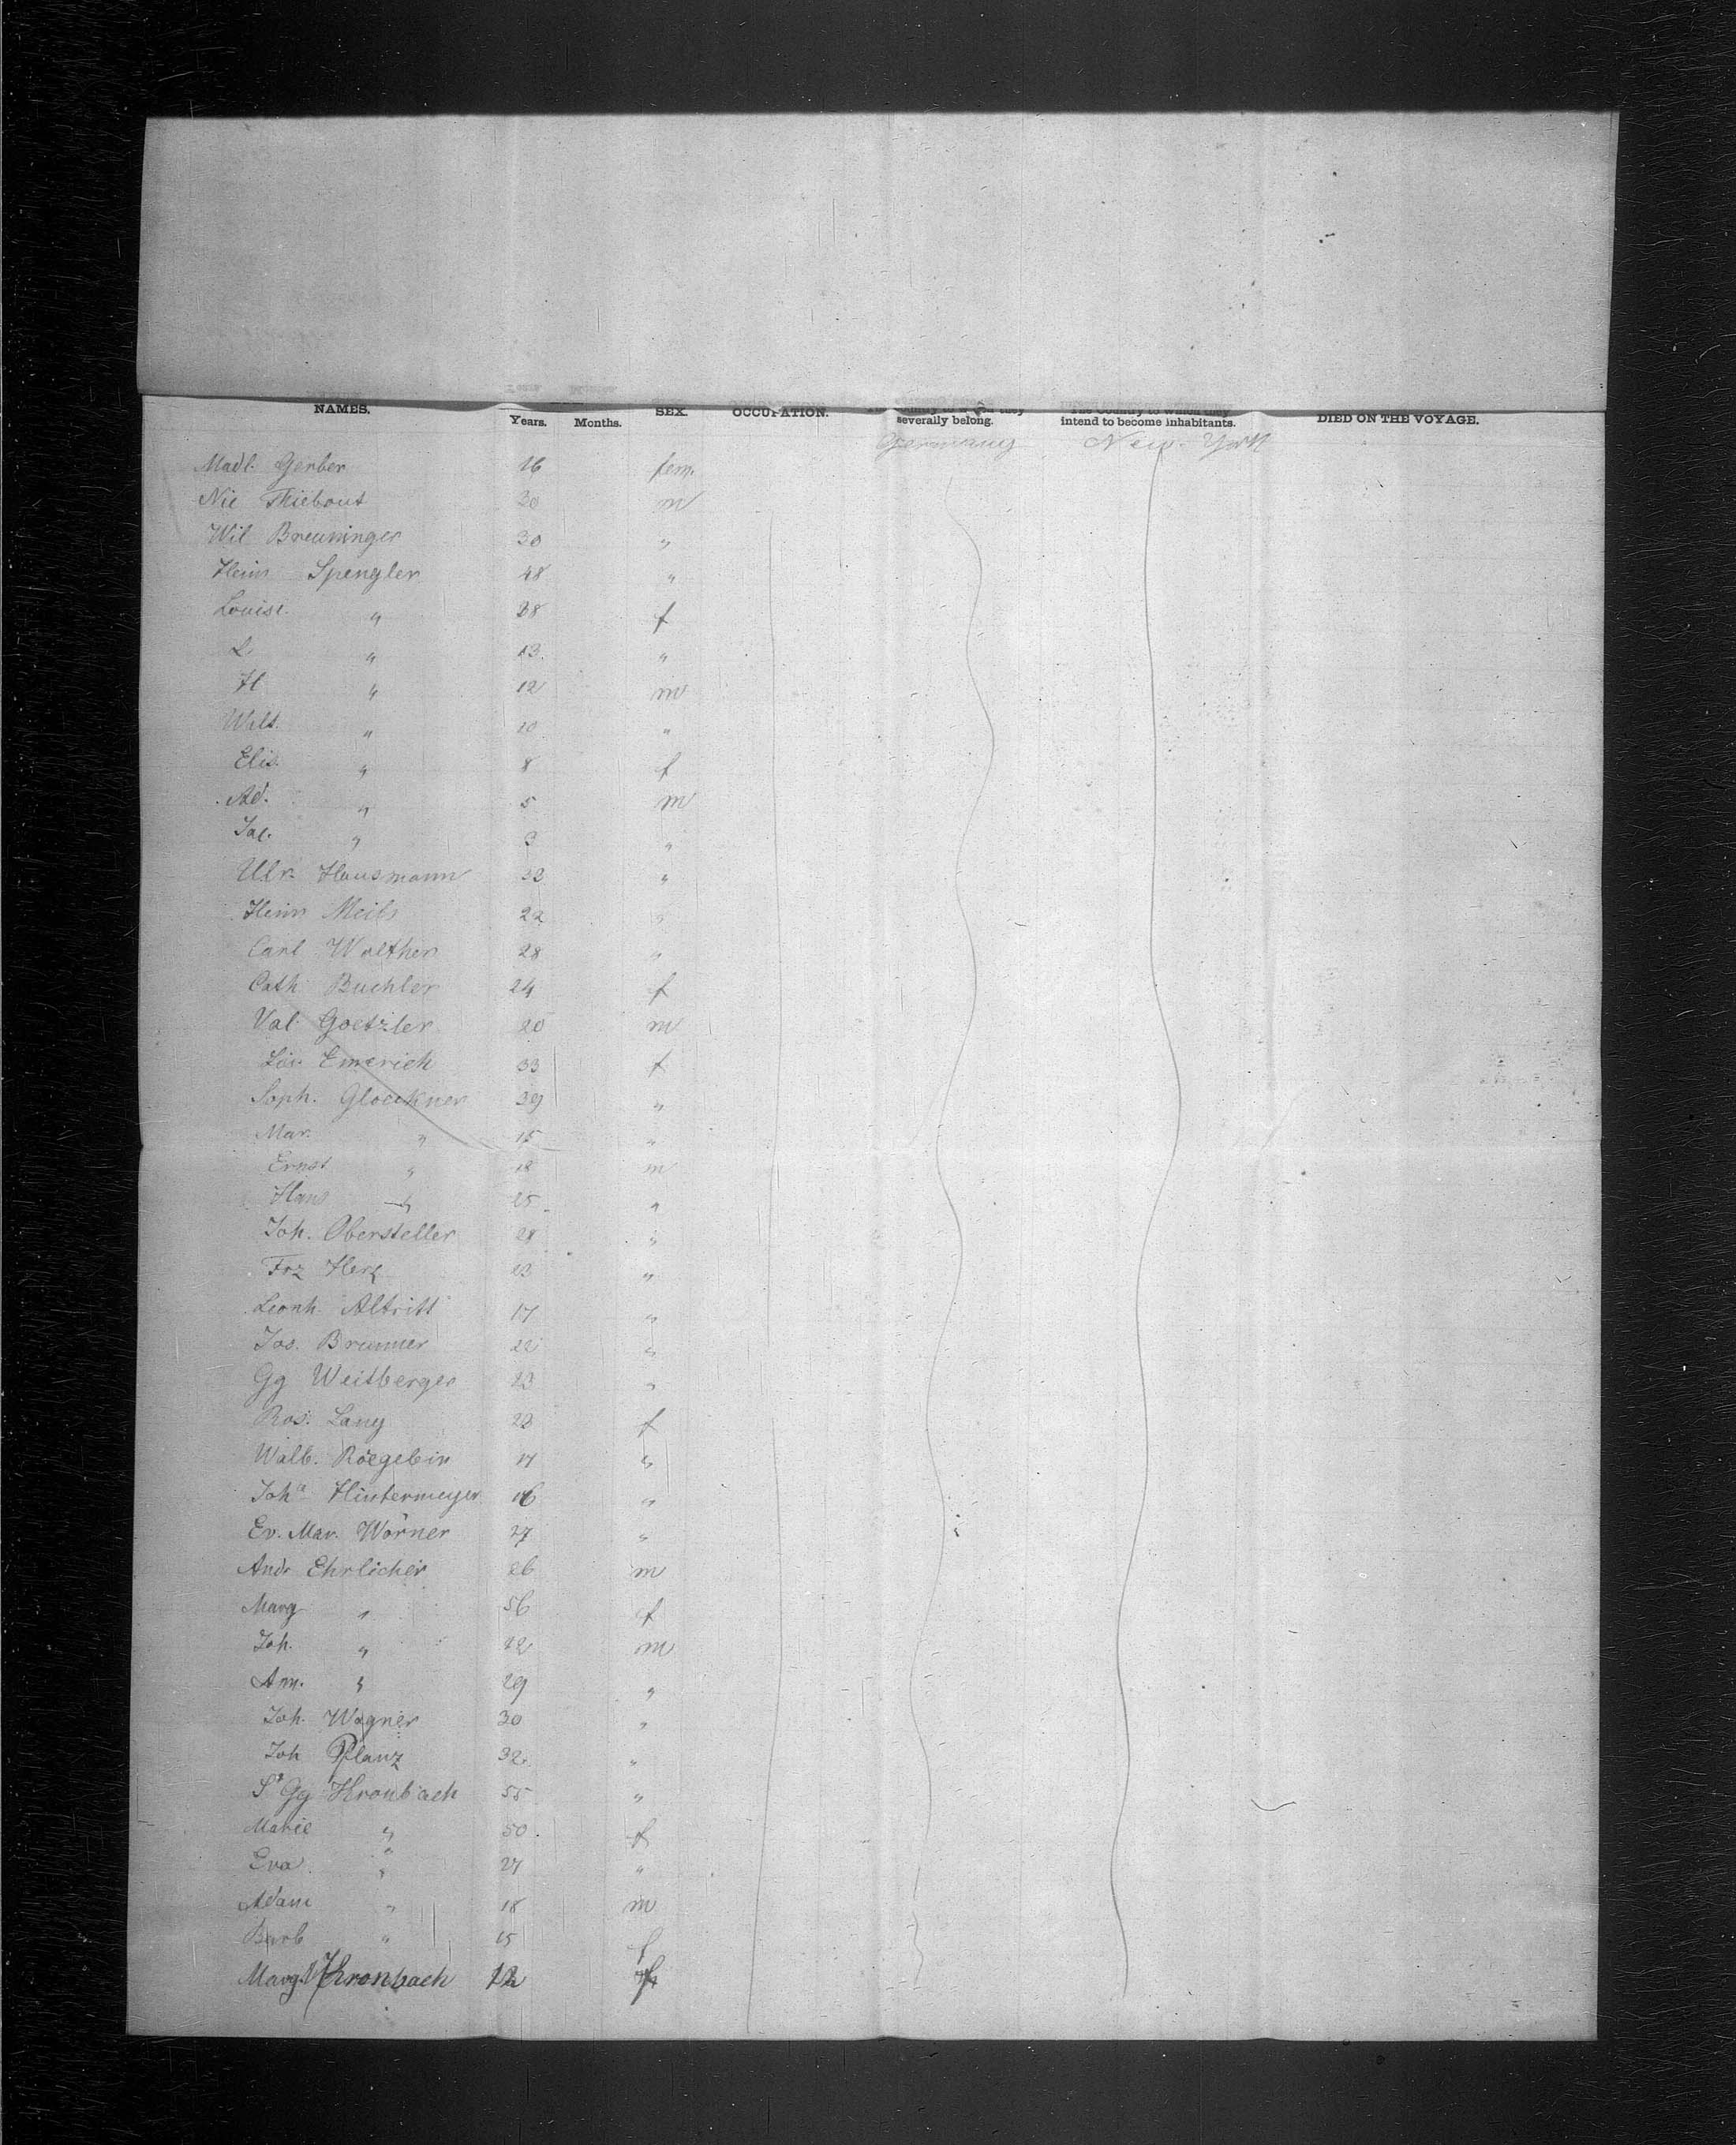 NAMES. Years. Months. SEX. OCCUPATION. severally belong. The Country to which they intend to become inhabitants. DIED ON THE VOYAGE.
Germany New-York
Madl. Gerber 16 fem.
Nic Thiebout 30 m
Wil Breuninger 30 "
Heinr Spengler 48 "
Louise " 38 f
L. " 13 "
H " 12 m
Wilh. " 10 "
Elis. " 8 f
Ad. " 5 m
Jac. " 3 "
Ulr. Hausmann 32 "
Heinr 22 "
Carl Walther 28 "
Cath Buchler 24 f
Val. Goetzler 20 m
Emerich 33 f
Soph. Gloeckner 39 "
Mar. " 15 "
Ernst " 18 m
Hans " 25 "
Joh. Obersteller 28 "
Frz Herz 23 "
Leonh. Altritt 17 "
Jos. Brunner 22 "
Gg Weitberger 23 "
Ros. Lang 22 f
Walb. Röegelein 17 "
Joha Hintermeyer 16 "
Ev. Mar. Wörner 27 "
Andr Ehrlicher 26 m
Marg " 56 f
Joh. " 22 m
Ann. " 29 "
Joh. Wagner 30 "
Joh Pflanz 32 "
Gg Kronbach 55 "
Marie " 50 f
Eva " 27 "
Adam " 18 m
Barb " 15 f
Marg. Kronbach 12 f